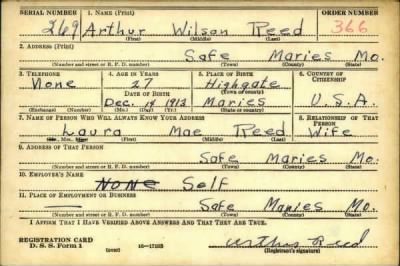 SERIAL NUMBER 1. NAME (Print) ORDER NUMBER
269 Arthur Wilson Reed 366
(First) (Middle) (Last)
2. ADDRESS (Print)
Safe Maries Mo.
(Number and street or R. F. D. number) (Town) (County) (State)
3. TELEPHONE 4. AGE IN YEARS 5. PLACE OF BIRTH 6. COUNTRY OF CITIZENSHIP
None 27 Highgate
DATE OF BIRTH (Town or county)
Dec. 14 1912 Maries U.S.A.
(Exchange) (Number) (Mo.) (Day) (Yr.) (State or country)
7. NAME OF PERSON WHO WILL ALWAYS KNOW YOUR ADDRESS 8. RELATIONSHIP OF THAT PERSON
Laura Mae Reed Wife
(Mr., Mrs., Miss) (First) (Middle) (Last)
9. ADDRESS OF THAT PERSON
Safe Maries Mo.
(Number and street or R. F. D. number) (Town) (County) (State)
10. EMPLOYER'S NAME
None Self
11. PLACE OF EMPLOYMENT OR BUSINESS
Safe Maries Mo.
(Number and street or R. F. D. number) (Town) (County) (State)
I AFFIRM THAT I HAVE VERIFIED ABOVE ANSWERS AND THAT THEY ARE TRUE.
REGISTRATION CARD
D. S. S. Form 1 (over) Arthur Reed
(Registrant's signature)